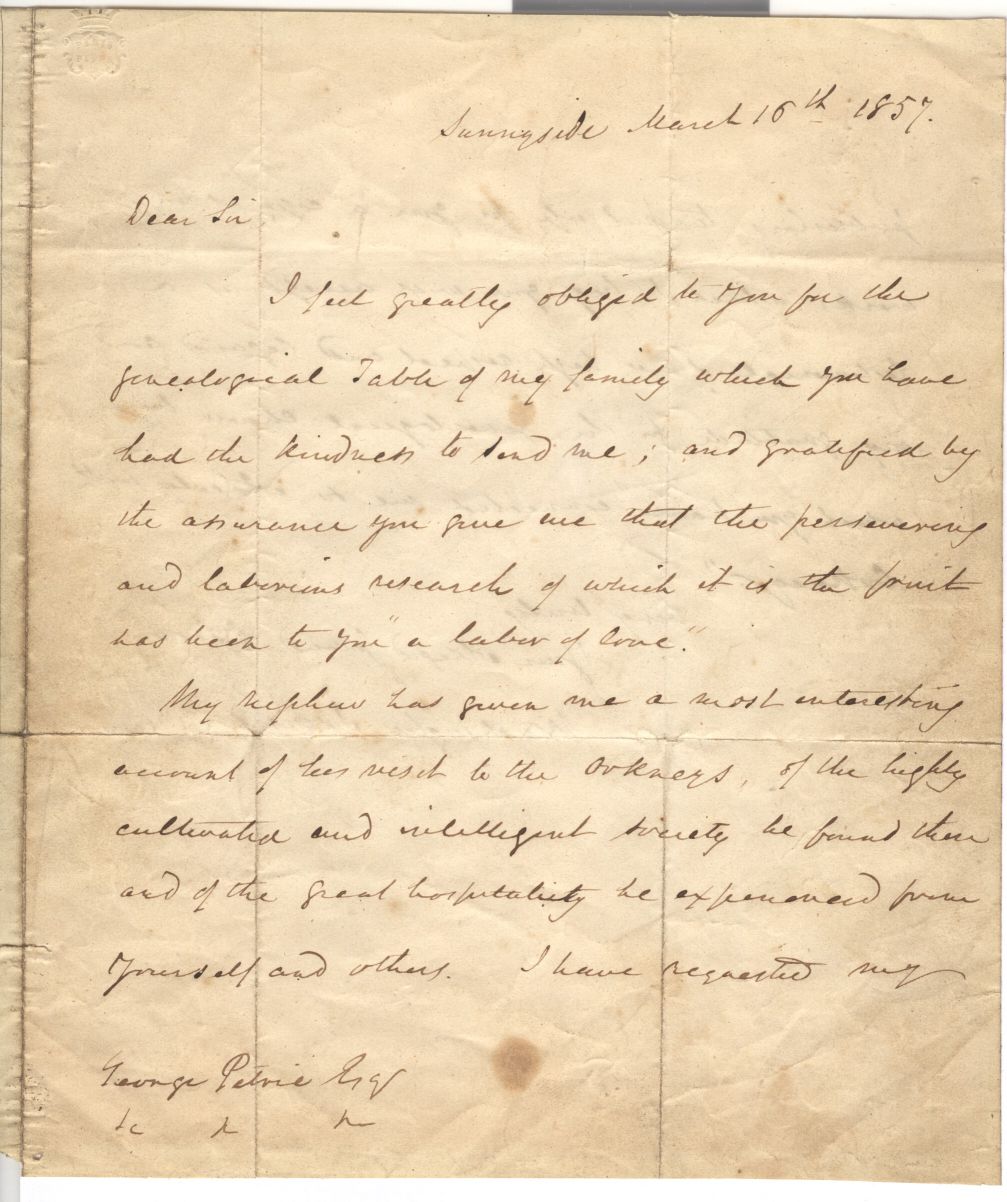 Sunnyside March 16th 1857.
Dear Sir
I feel greatly obliged to you for the
genealogical Table of my family which you have
had the kindness to send me; and gratified by
the assurance you give me that the persevering
and laborious research of which it is the fruit
has been to you "a labor of love."
My nephew has given me a most interesting
account of his visit to the Orkneys, of the highly
cultivated and intelligent society he found there
and of the great hospitality he experienced from
yourself and others. I have requested my
George Petrie Esqr
&c &c &c